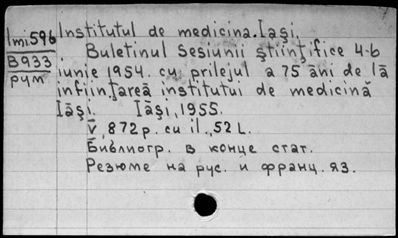 Institutul de medicina. Iaşi.
1mi596
Buletinul Sesiunii ştiinţifice 4-6
B933
iunie 1954. cu prilejul a 75 ani de la
рум
infiinţarea institutui de medicină
Iăşi. Iăşi, 1955.
V, 872 p. cu il., 52 L.
Библиогр. в конце стат.
Резюме на рус. и франц. яз.